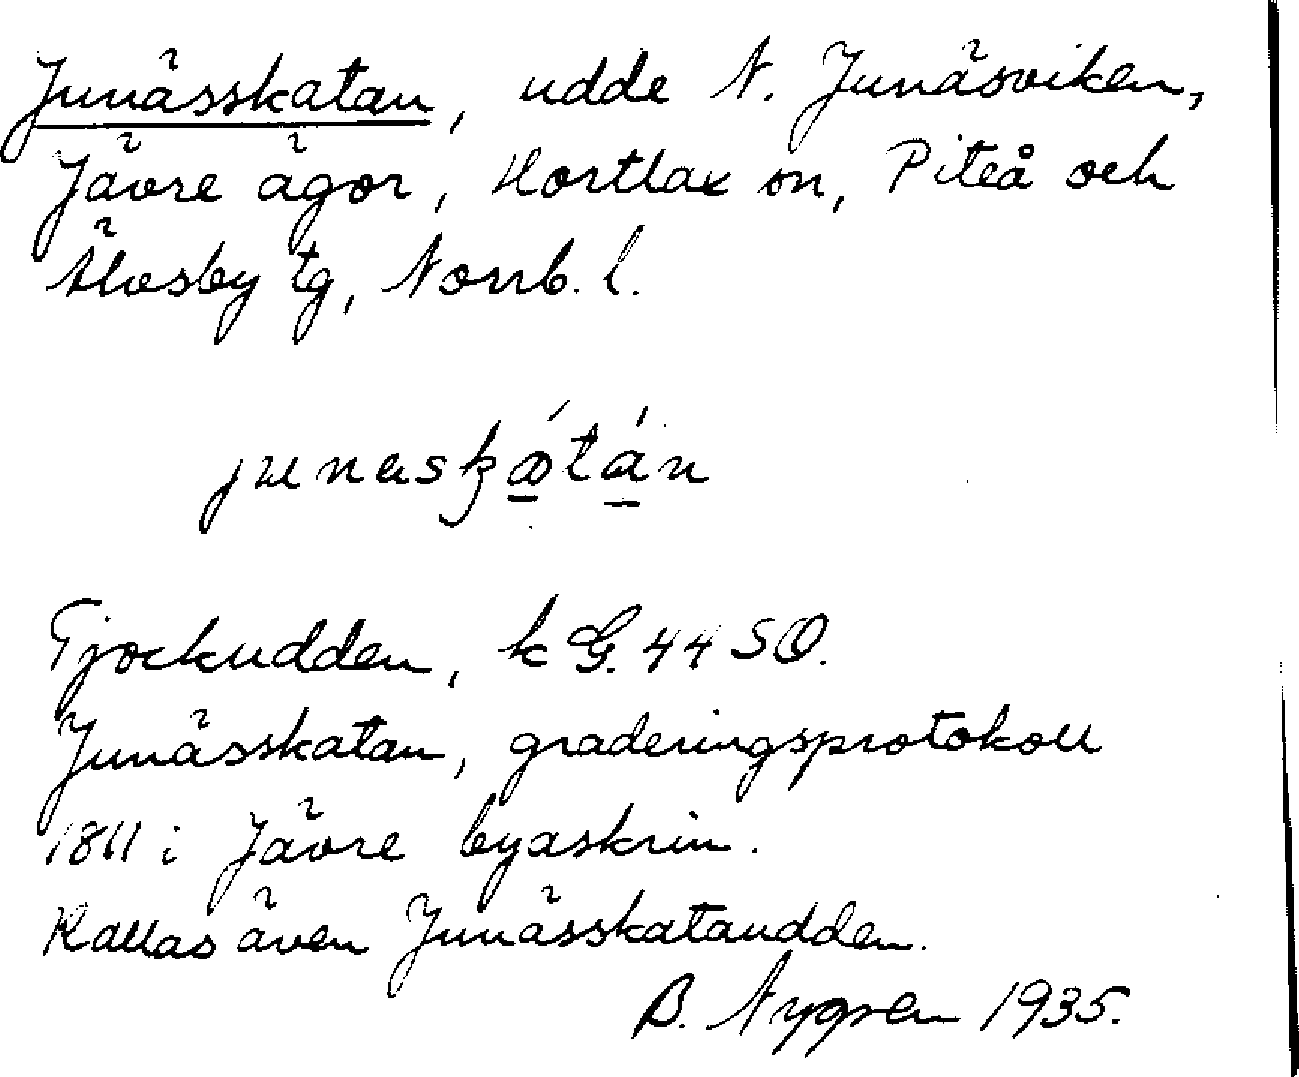 Junässkatan, udde N. Junäsviken,
Jävre ägor, Hortlax sn, Piteå och
Älvsby tg, Norrb. l.
Tjockudden, kG. 44 SO.
Junässkatan, graderingsprotokoll
1811 i Jävre byaskrin.
Kallas även Junässkataudden.
B. Nygren 1935.